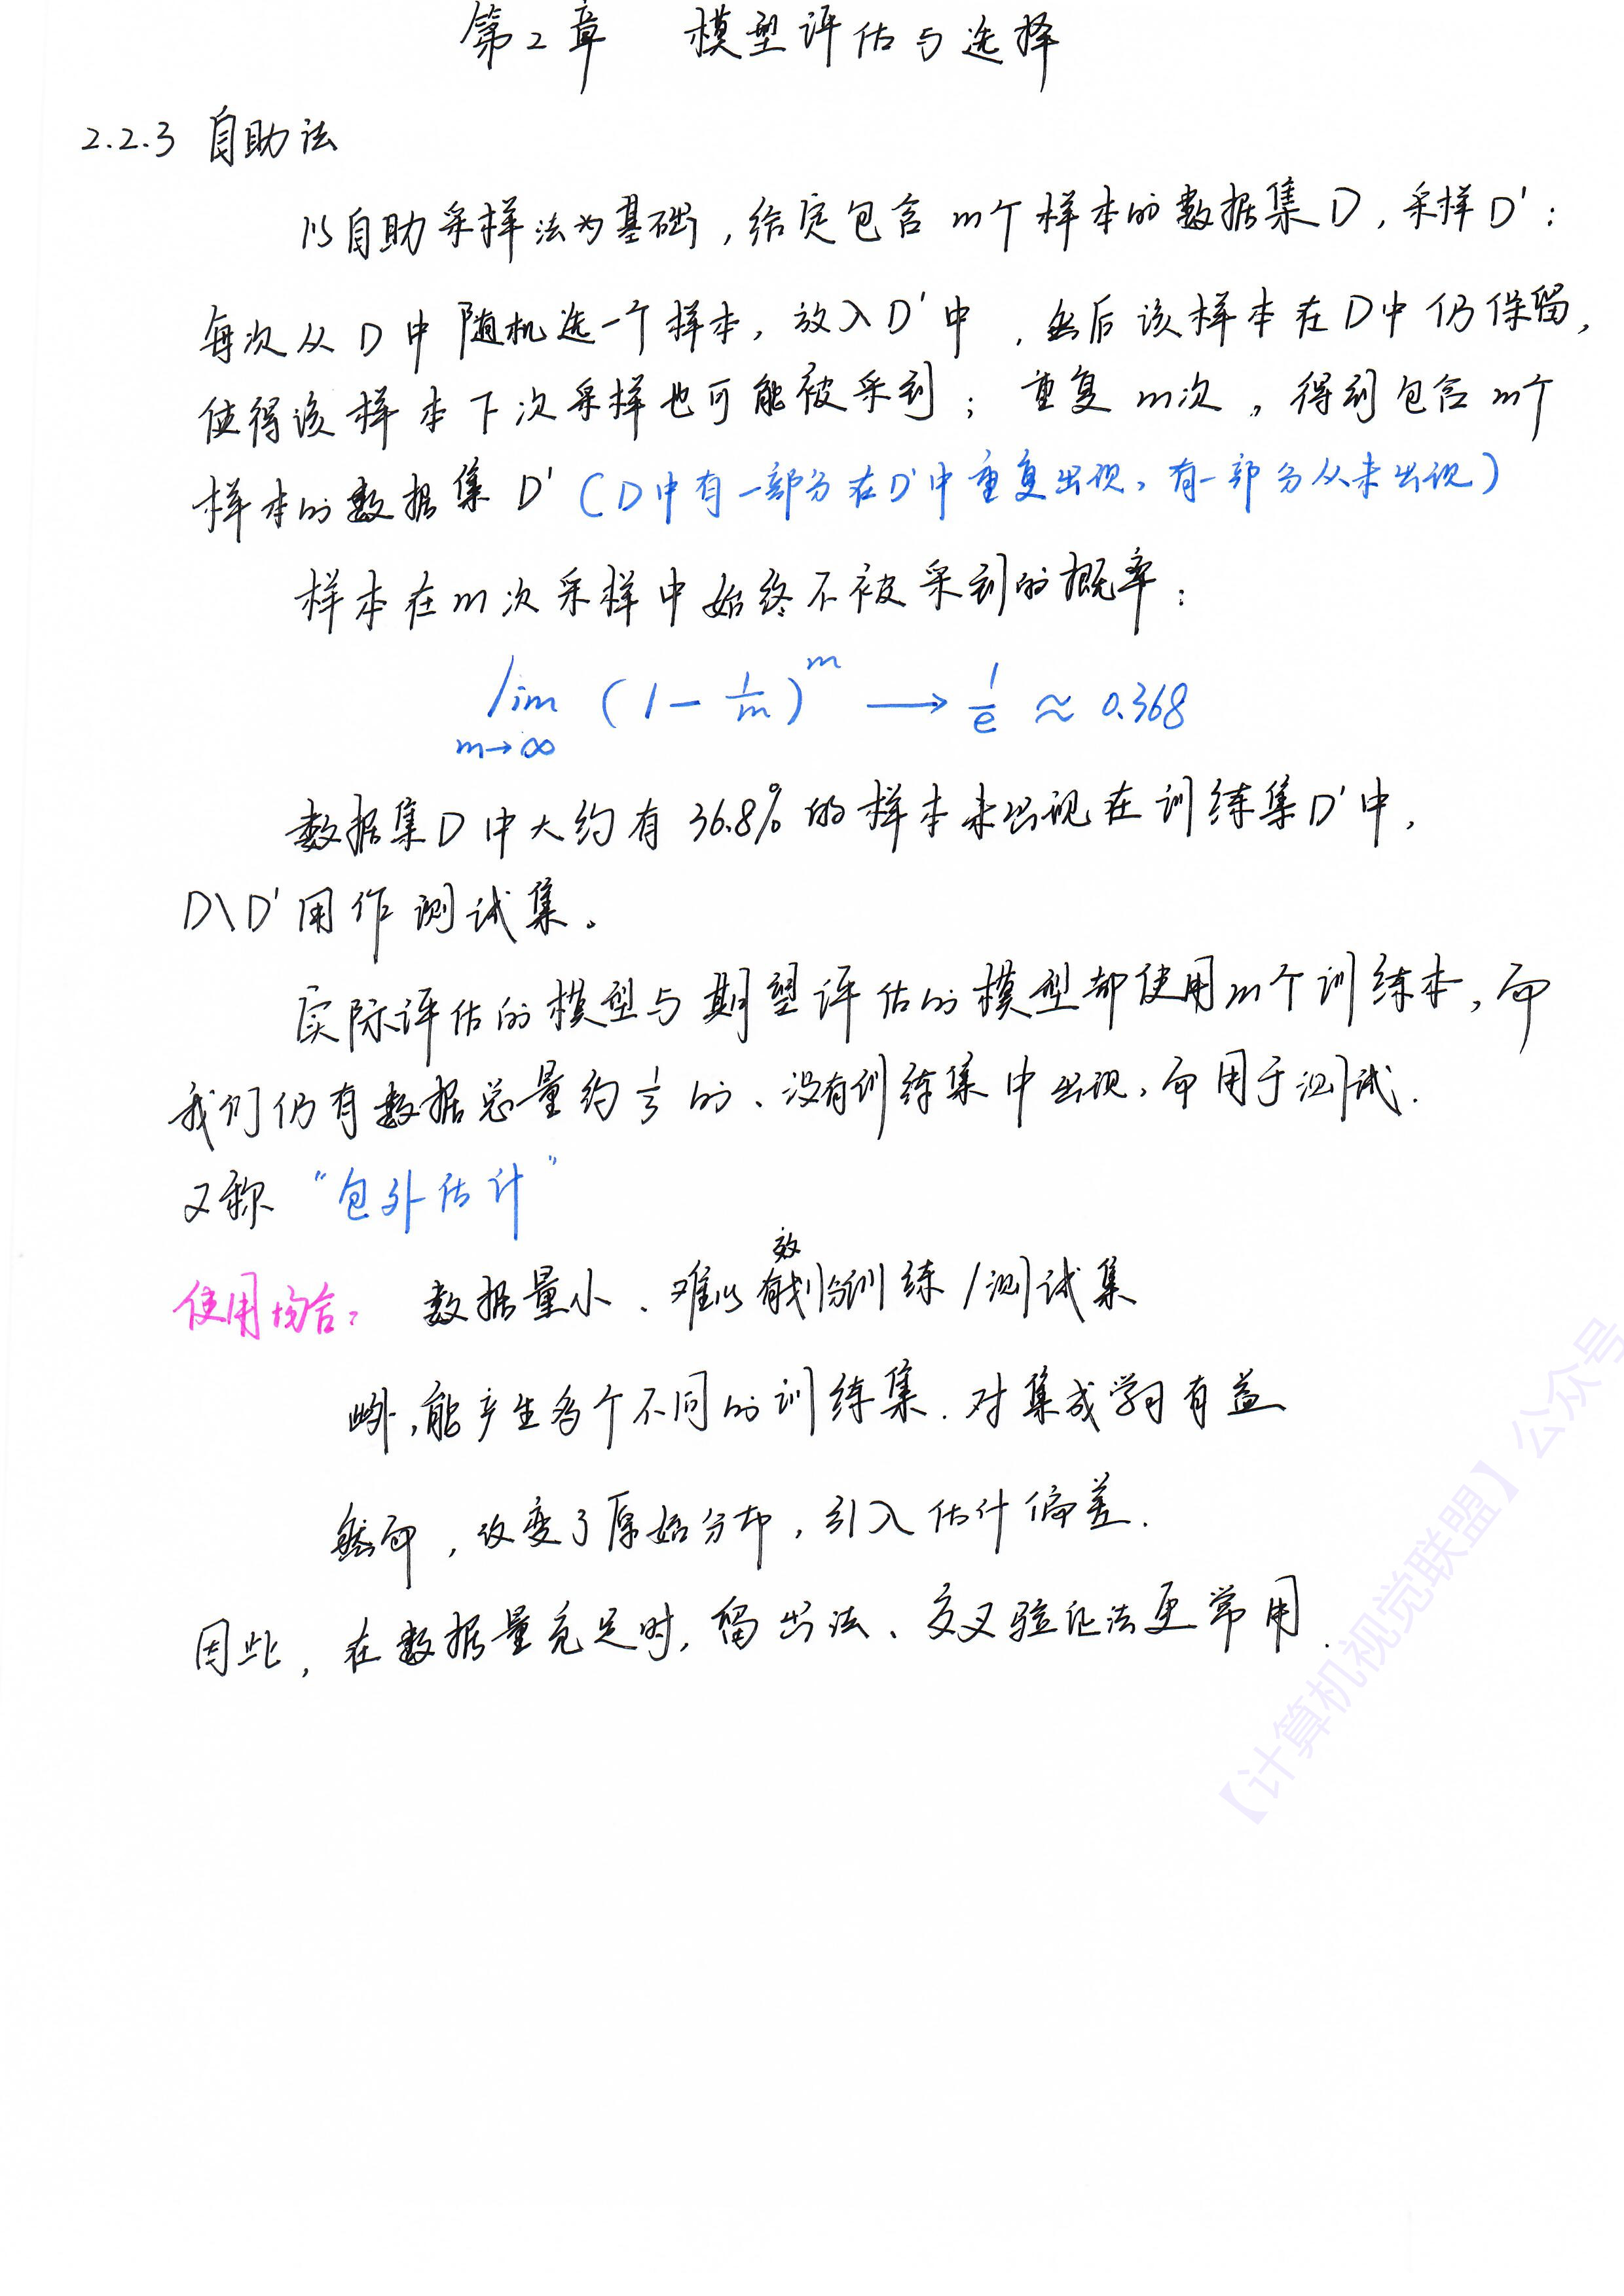 第2章 模型评估与选择
2.2.3 自助法
以自助采样法为基础,给定包含m个样本的数据集D,采样D':
每次从D中随机选一个样本,放入D'中,然后该样本在D中仍保留,
使得该样本下次采样也可能被采到;重复m次,得到包含m个
样本的数据集D'(D中有一部分在D'中重复出现,有一部分从未出现)
样本在m次采样中始终不被采到的概率:
lim (1 - 1/m)^m → 1/e ≈ 0.368
m→∞
数据集D中大约有36.8%的样本未出现在训练集D'中,
D\D'用作测试集。
实际评估的模型与期望评估的模型都使用m个训练本,而
我们仍有数据总量约1/3的、没有训练集中出现,而用于测试.
又称“包外估计”
使用场合: 数据量小、难以有效划分训练/测试集
此外,能产生多个不同的训练集.对集成学习有益
然而,改变了原始分布,引入估计偏差.
因此,在数据量充足时,留出法、交叉验证法更常用.
【计算机视觉联盟】公众号